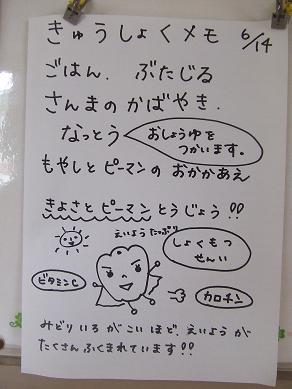 きゅうしょくメモ 6/14
ごはん. ぶたじる
さんまのかばやき.
なっとう
おしょうゆを
つかいます。
もやしとピーマンのおかかあえ
きよさとピーマンとうじょう!!
えいようたっぷり
しょくもつ
せんい
ビタミンC
カロチン
みどりいろがこいほど、えいようが
たくさんふくまれています!!